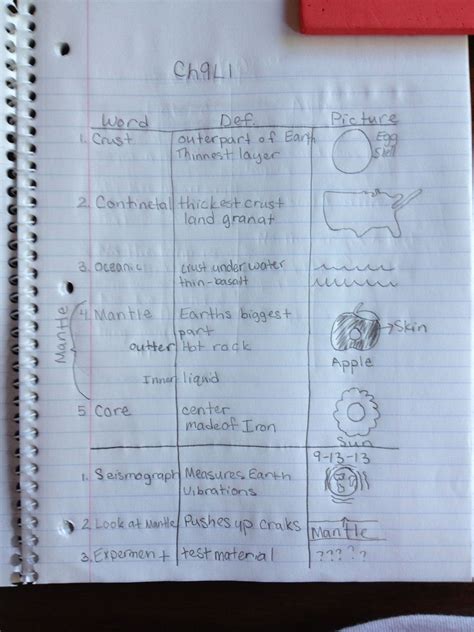 Ch9L1
Word Def. Picture
1. Crust outerpart of Earth Egg
Thinnest layer Shell
2. Continetal thickest crust
land granat
3. Oceanic crust under water
thin-basalt
Mantle
4. Mantle Earths biggest
part → Skin
outter Hot rock
Apple
Inner liquid
5 Core center
made of Iron
Sun
9-13-13
1. Seismograph Measures Earth
Vibrations
2 Look at Mantle Pushes up craks Mantle
3. Experment test material ?????